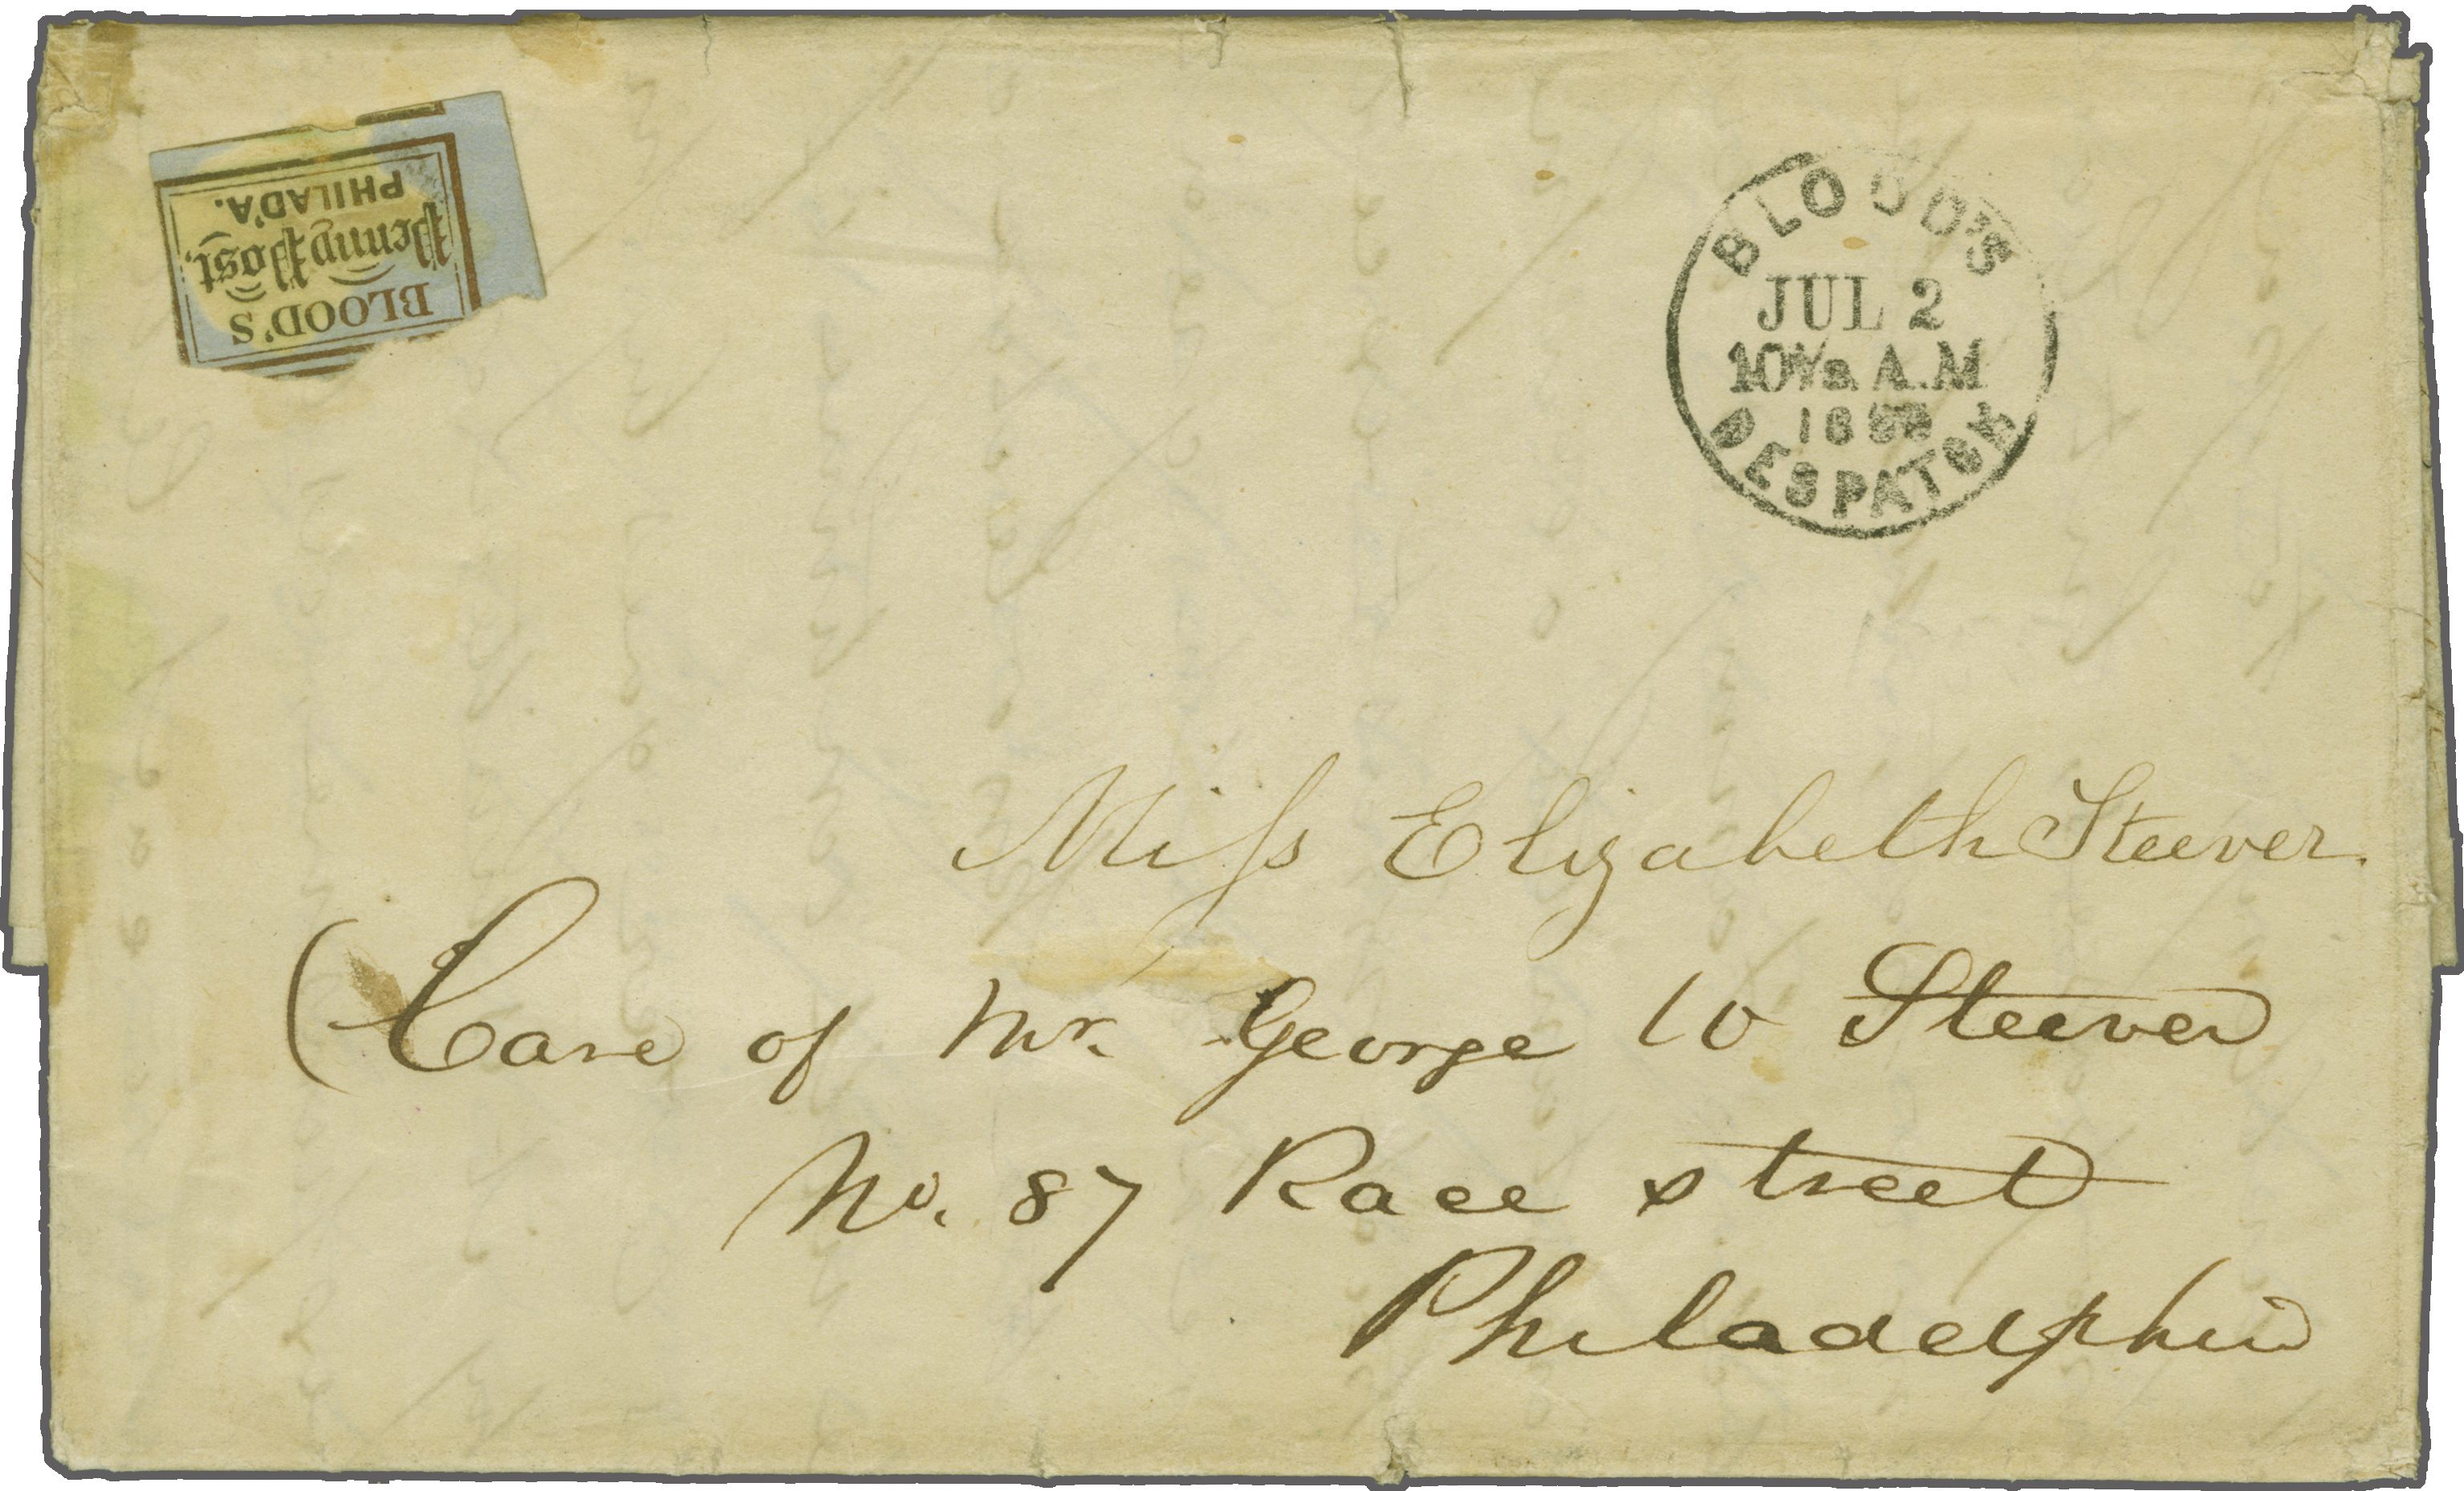 BLOOD'S
Penny Post.
PHILAD'A.
BLOOD'S
JUL 2
10½ A.M
DESPATCH
Miss Elizabeth Steever.
(Care of Mr. George W Steever
No. 87 Race street
Philadelphia